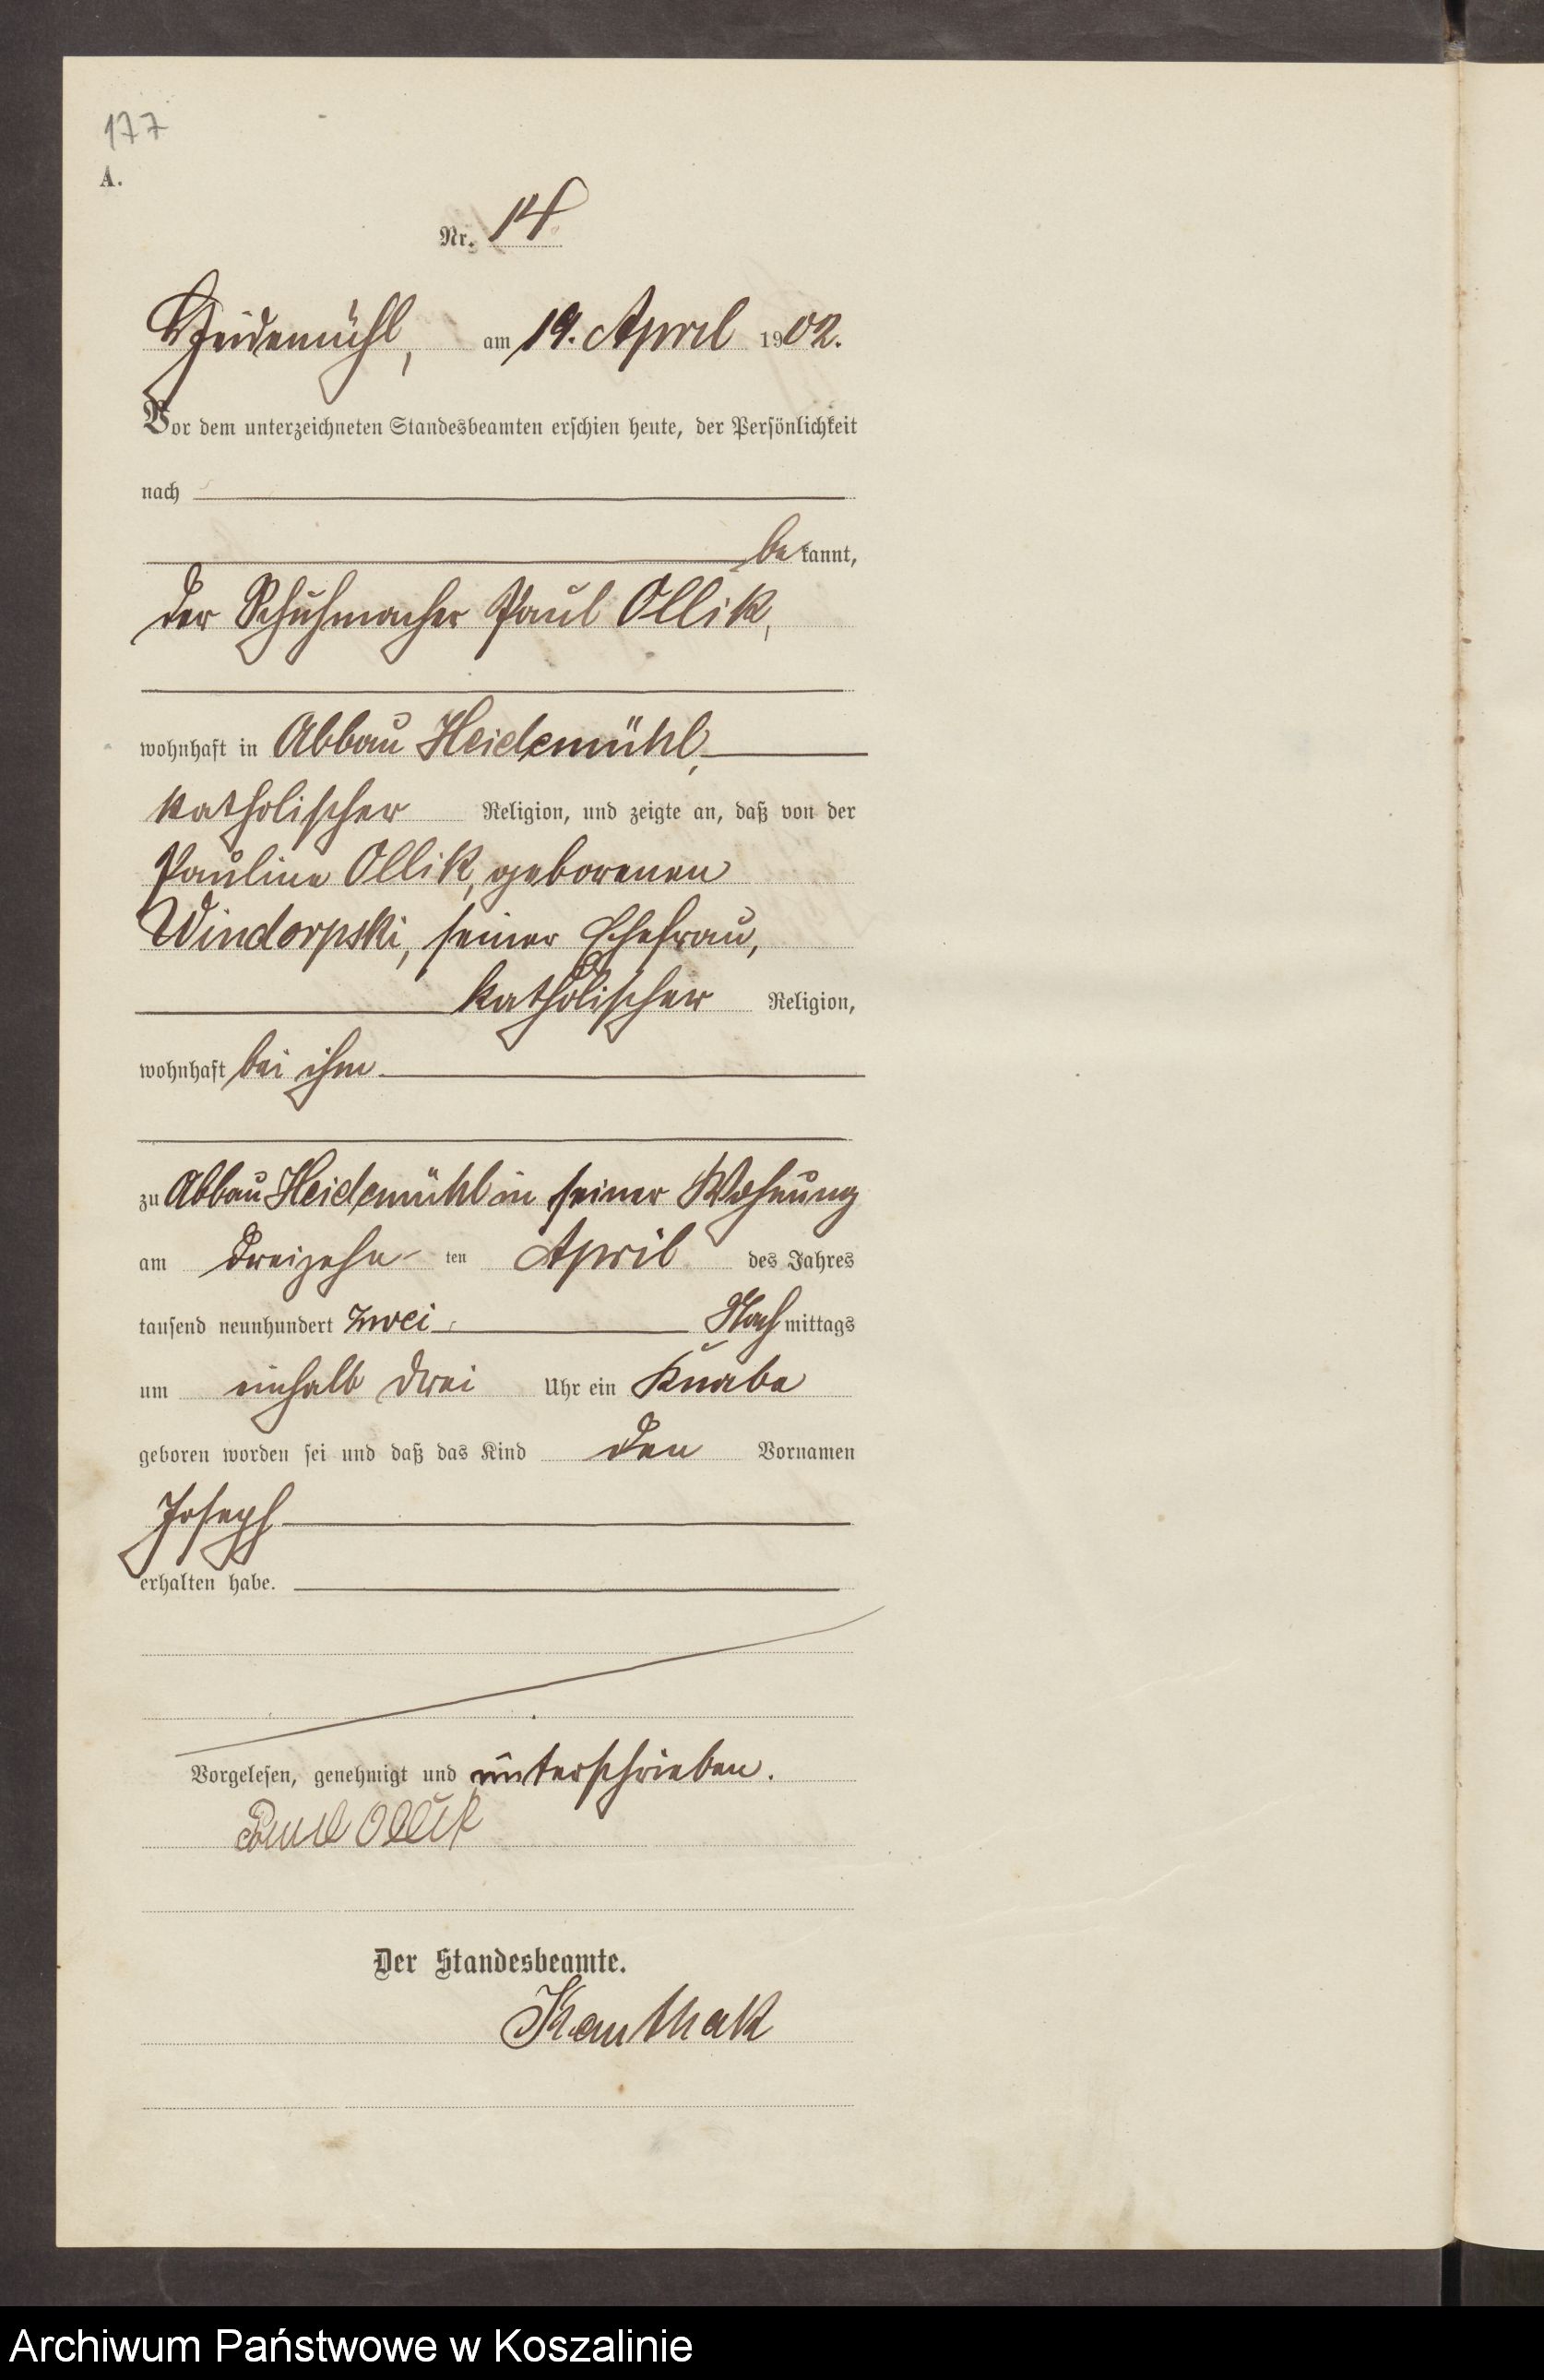 177
A.
Nr. 14.
Heidemühl, am 19. April 1902.
Vor dem unterzeichneten Standesbeamten erschien heute, der Persönlichkeit
nach
be kannt,
der Schuhmacher Paul Ollik,
wohnhaft in Abbau Heidemühl,
katholischer Religion, und zeigte an, daß von der
Pauline Ollik, geborenen
Windorpski, seiner Ehefrau,
katholischer Religion,
wohnhaft bei ihm
zu Abbau Heidemühl in seiner Wohnung
am dreizehn ten April des Jahres
tausend neunhundert zwei Nach mittags
um einhalb drei Uhr ein Knabe
geboren worden sei und daß das Kind den Vornamen
Joseph
erhalten habe.
Vorgelesen, genehmigt und unterschrieben.
Paul Ollik
Der Standesbeamte.
Kanthak
Archiwum Państwowe w Koszalinie